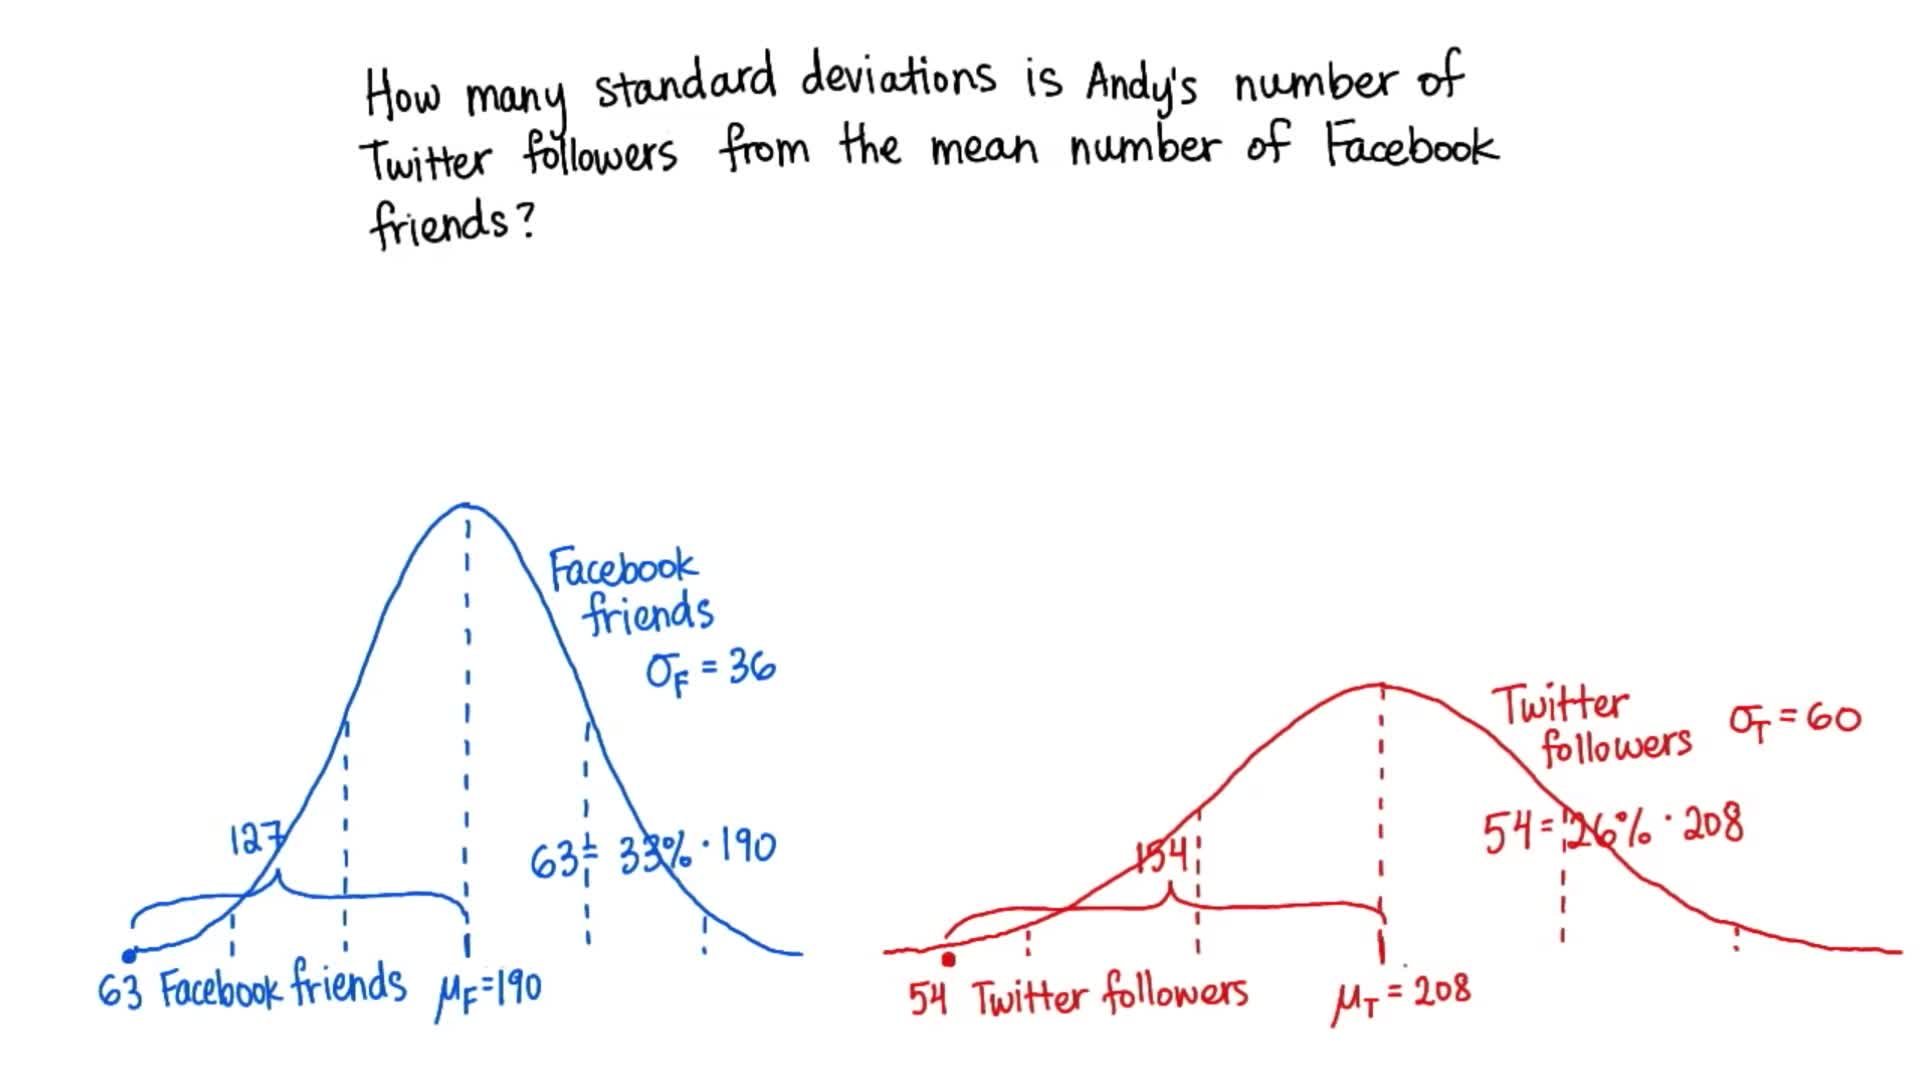 How many standard deviations is Andy's number of
Twitter followers from the mean number of Facebook
friends?
Facebook
friends
σF = 36
127
63 = 33% · 190
63 Facebook friends
μF = 190
Twitter
followers
σT = 60
154
54 = 26% · 208
54 Twitter followers
μT = 208